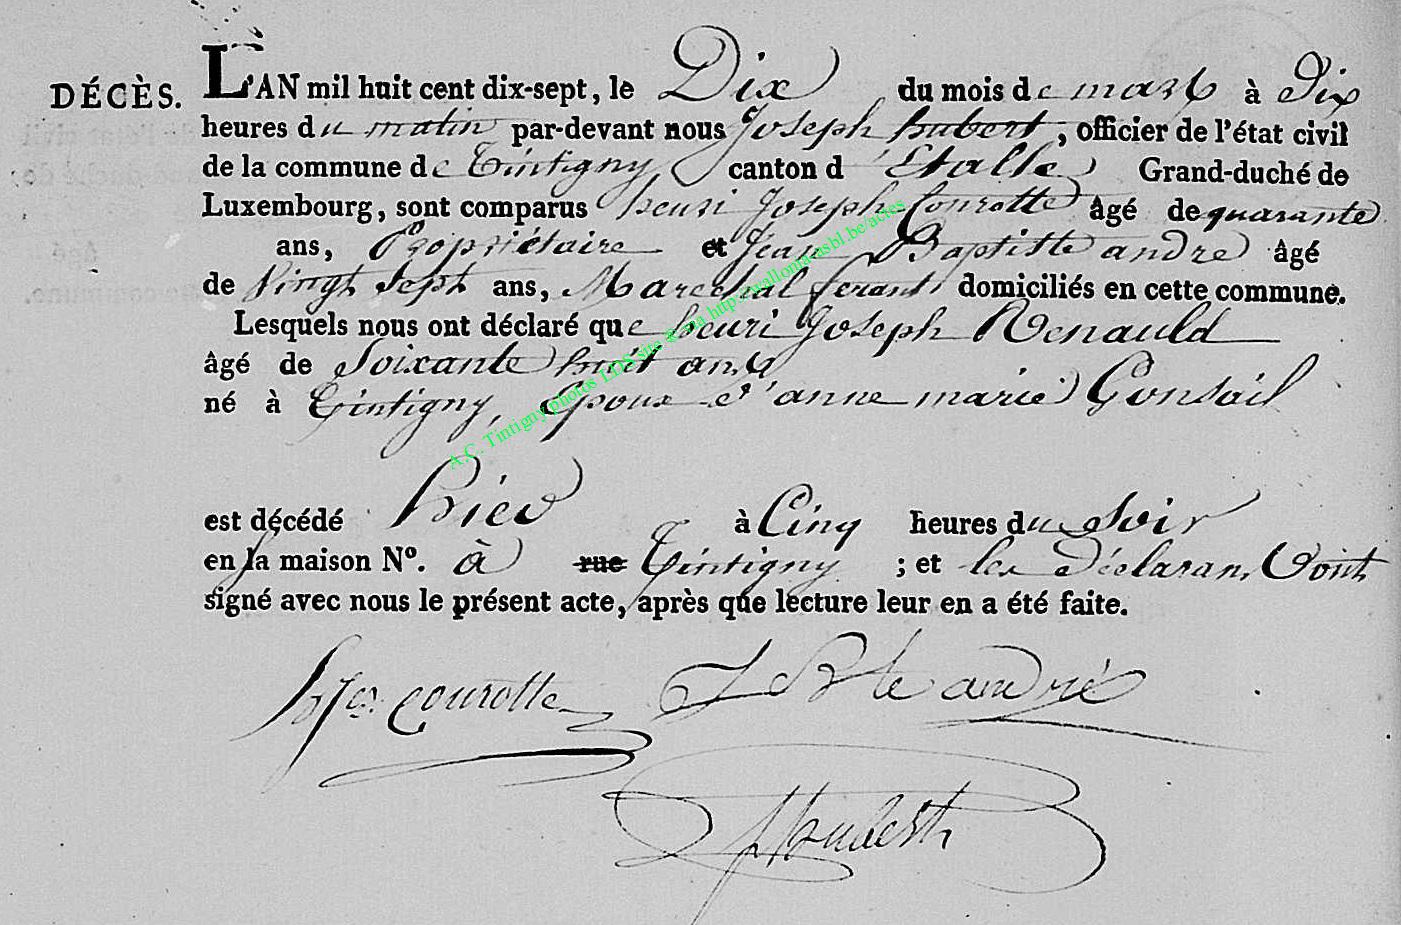 DÉCÈS. L'AN mil huit cent dix-sept, le Dix du mois de mars à Dix
heures du matin par-devant nous Joseph hubert, officier de l'état civil
de la commune de Tintigny canton d'Etalle Grand-duché de
Luxembourg, sont comparus henri Joseph Conrotte âgé de quarante
ans, Propriétaire et Jean Baptiste andre âgé
de Vingt Sept ans, Marechal ferant domiciliés en cette commune.
Lesquels nous ont déclaré que henri Joseph Renauld
âgé de Soixante huit ans
né à Tintigny, Epoux d'anne marie
est décédé hier à Cinq heures du Soir
en la maison N°. à rue Tintigny ; et les Déclarans ont
signé avec nous le présent acte, après que lecture leur en a été faite.
conrotte JBte andré
hubert
A.C. Tintigny photos LDS site & via http://wallonia-asbl.be/actes